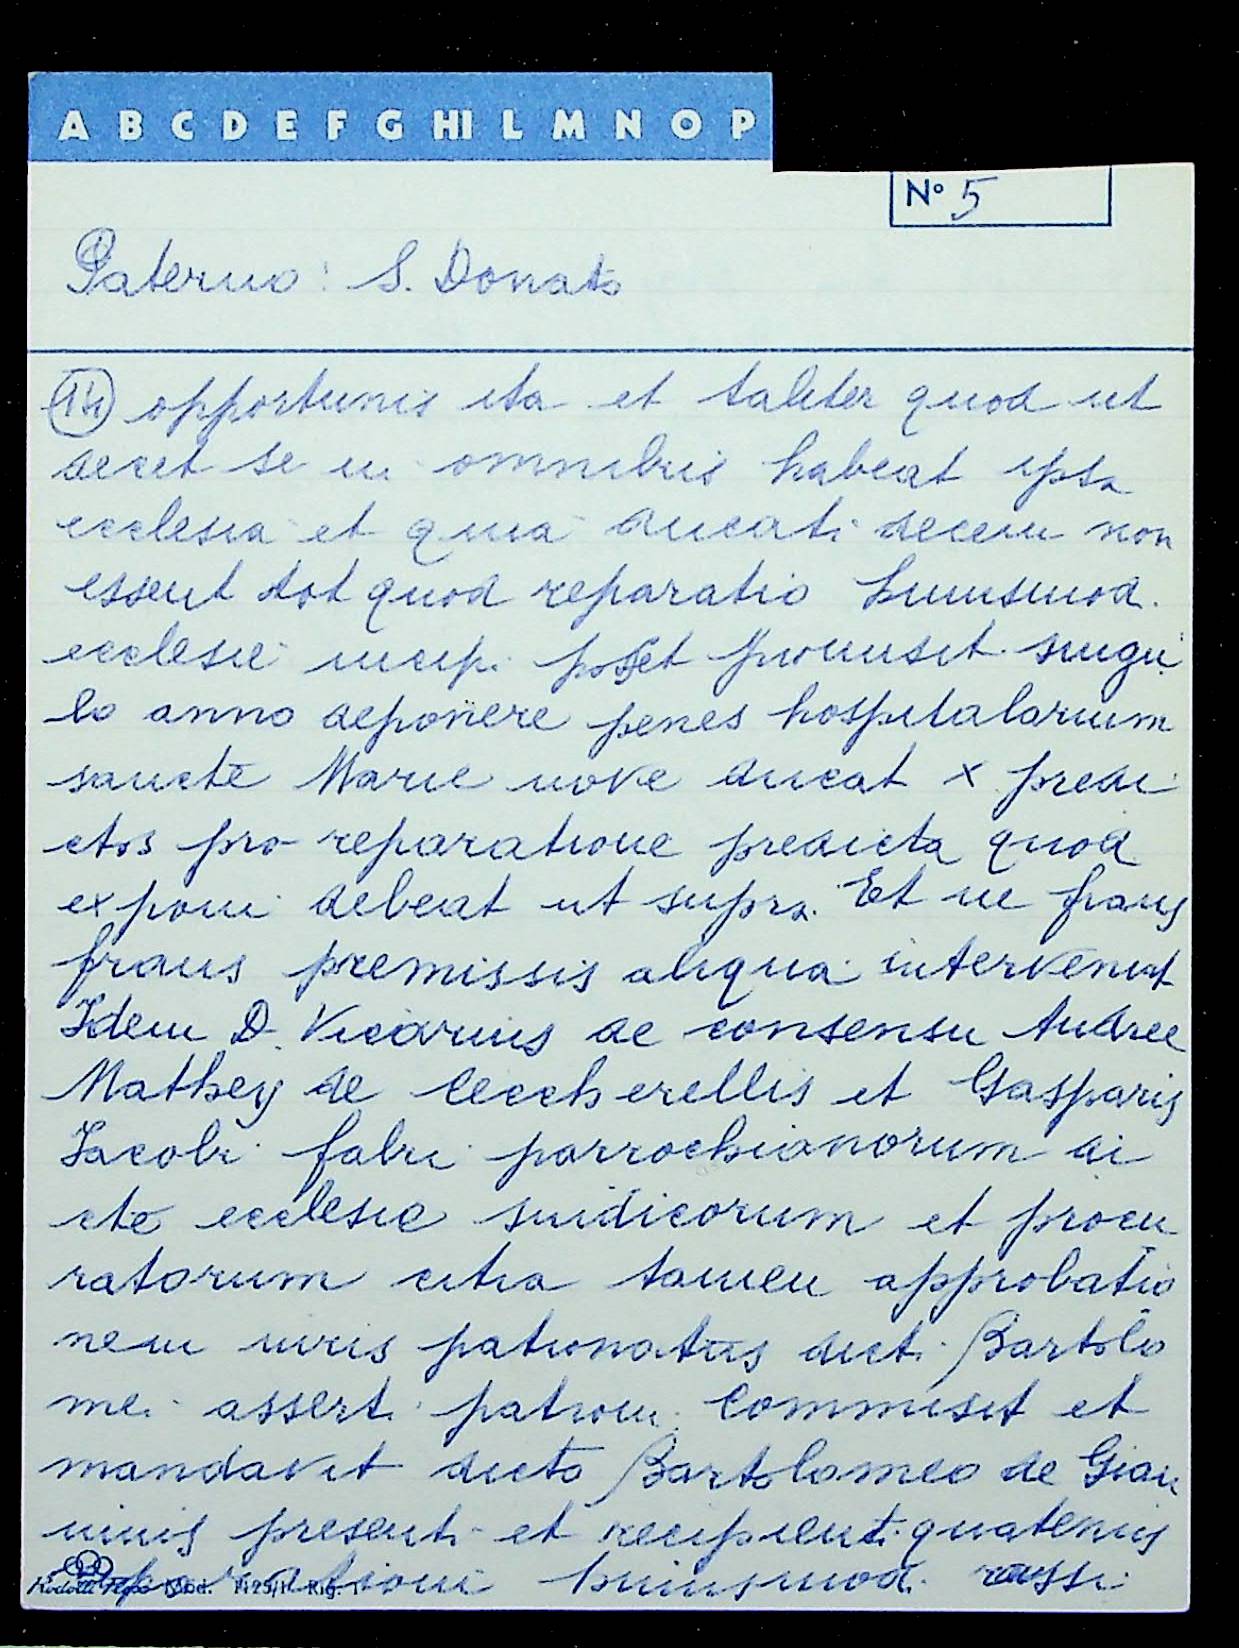 A B C D E F G HI L M N O P
N° 5
Paterno: S. Donato
14 opportunis ita et taliter quod ut
decet se in omnibus habeat ipsa
ecclesia et quia ducati decem non
essent tot quod reparatio huiusmod.
ecclesie incip. posset promisit singu
lo anno deponere penes hospitalarium
sancte Marie nove ducat x predi
ctos pro reparatione predicta quod
exponi debeat ut supra. Et ne fraus
fraus premissis aliqua interveniat
Idem D. Vicarius de consensu Andree
Mathey de Ceccherellis et Gasparis
Iacobi fabri parrochianorum di
cte ecclesie sindicorum et procu
ratorum citra tamen approbatio
nem iuris patronatus dicti Bartolo
mei assert. patroni. Commisit et
mandavit dicto Bartolomeo de Gian
ninis presenti et recipienti quatenus
reparationi huiusmod.
Mod.